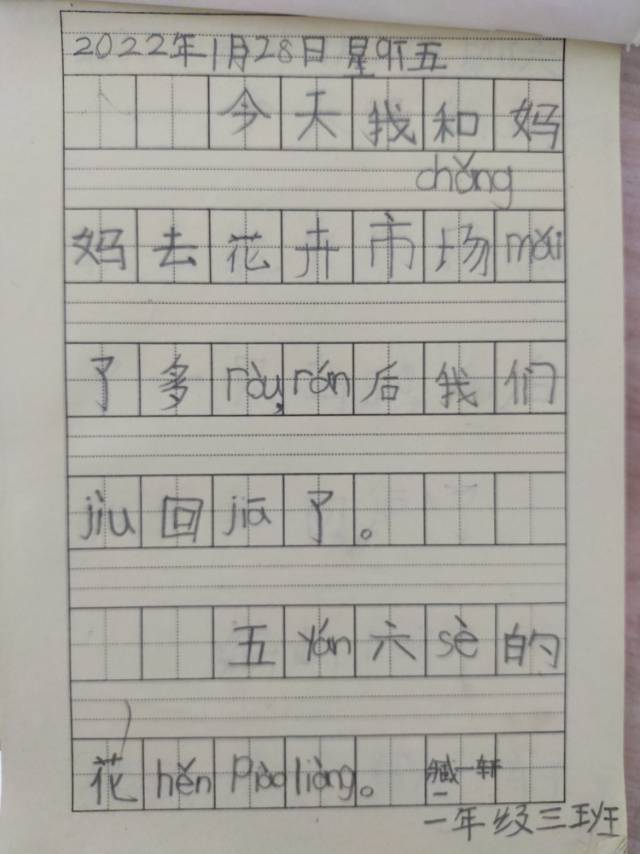 2022年1月28日 星期五
今天我和妈
chǎng
妈去花卉市场mǎi
了多ròu,rán后我们
jiù回jiā了。
五yán六sè的
花hěn Piàoliàng。 臧一轩
一年级三班